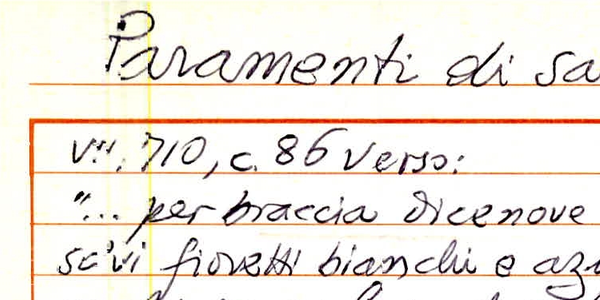 Paramenti di sa
v. 710, c. 86 verso:
"... per braccia dicenove
fioretti bianchi e az